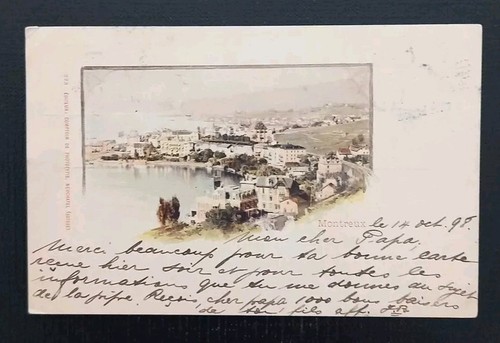 Montreux le 14 oct. 98.
Mon cher Papa,
Merci beaucoup pour ta bonne carte
reçue hier soir et pour toutes les
informations que tu me donnes au sujet
de la pipe. Reçois, cher papa 1000 bons baisers
de ton fils aff.